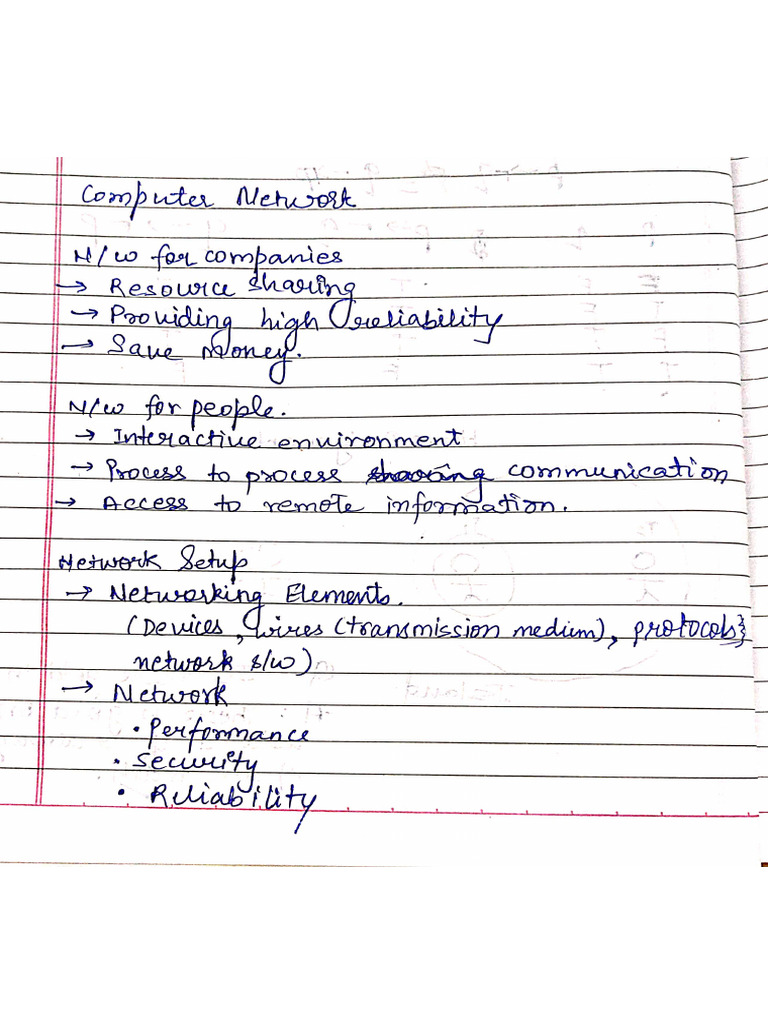 Computer Network
N/W for companies
→ Resource sharing
→ Providing high reliability
→ Save money.
N/W for people.
→ Interactive environment
→ Process to process sharing communication
→ Access to remote information.
Network Setup
→ Networking Elements.
(Devices, wires (transmission medium), protocols,
network s/w)
→ Network
• Performance
• Security
• Reliability